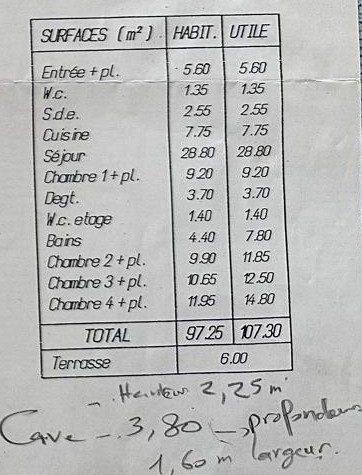 SURFACES (m²) HABIT. UTILE
Entrée + pl. 5.60 5.60
W.c. 1.35 1.35
S.d.e. 2.55 2.55
Cuisine 7.75 7.75
Séjour 28.80 28.80
Chambre 1 + pl. 9.20 9.20
Degt. 3.70 3.70
W.c. etage 1.40 1.40
Bains 4.40 7.80
Chambre 2 + pl. 9.90 11.85
Chambre 3 + pl. 10.65 12.50
Chambre 4 + pl. 11.95 14.80
TOTAL 97.25 107.30
Terrasse 6.00
- Hauteur 2,25 m
Cave - 3,80 -> profondeur
1,60 m largeur.